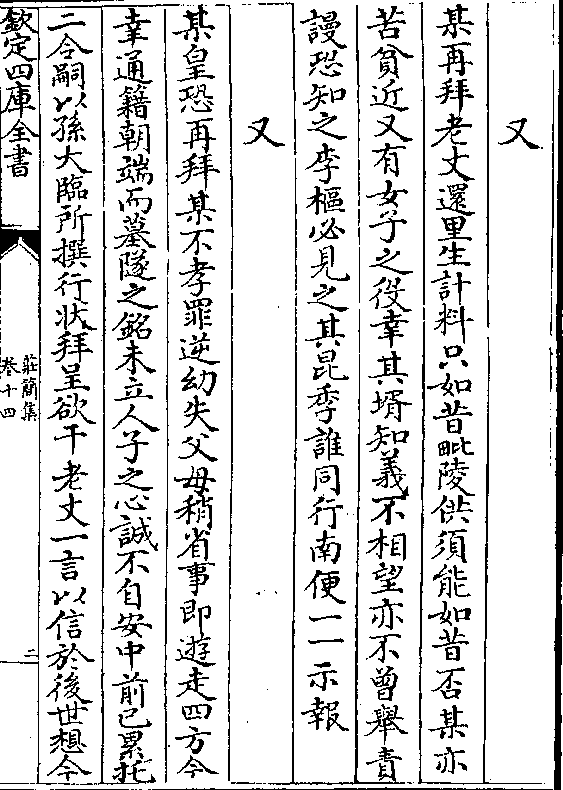 又
某再拜老丈還里生計料只如昔毗陵供須能如昔否某亦
苦貧近又有女子之役幸其壻知義不相望亦不曾舉責
謾恐知之李樞必見之其昆季誰同行南便一一示報
又
某皇恐再拜某不孝罪逆幼失父母稍省事即遊走四方今
幸通籍朝端而墓隧之銘未立人子之心誠不自安中前已累托
二令嗣以孫大臨所撰行狀拜呈欲干老丈一言以信於後世想今
欽定四庫全書
莊簡集
卷十四
二